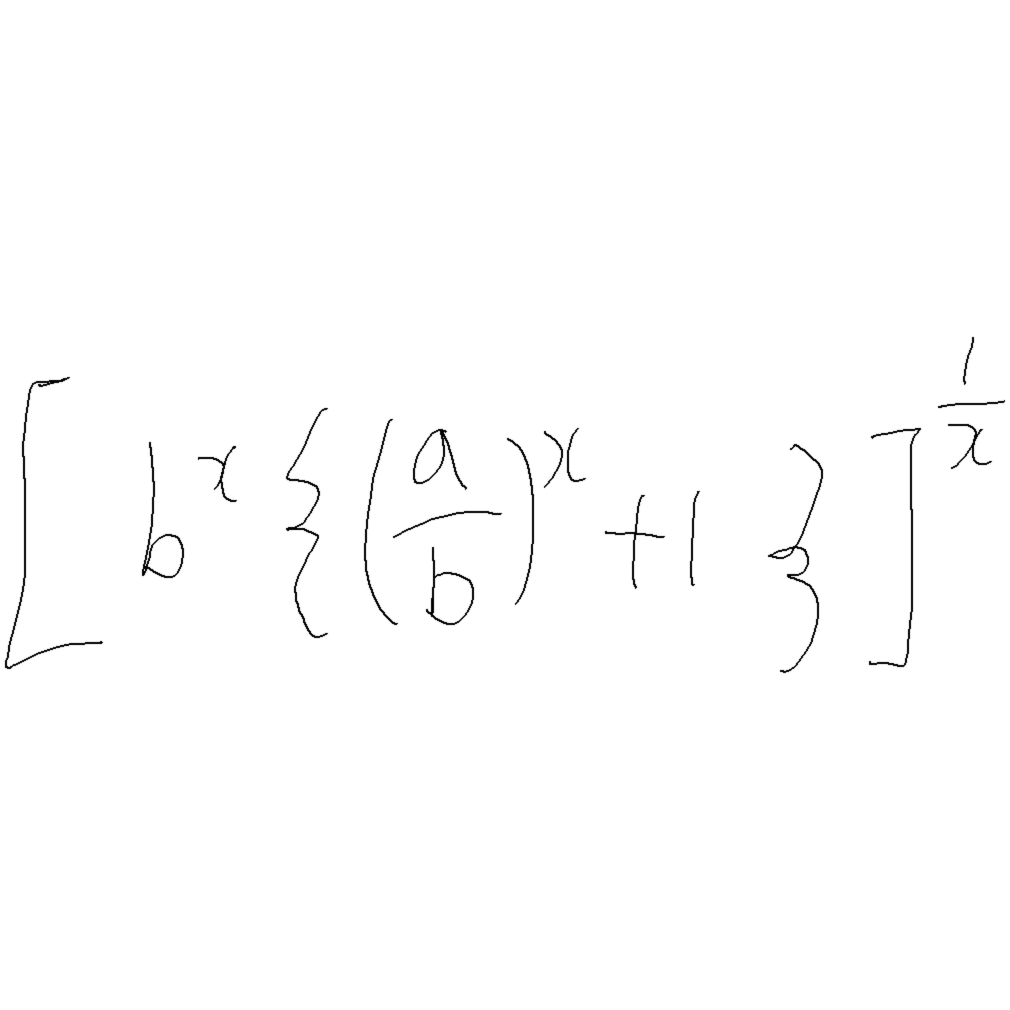 [b^x {(a/b)^x + 1}]^{1/x}